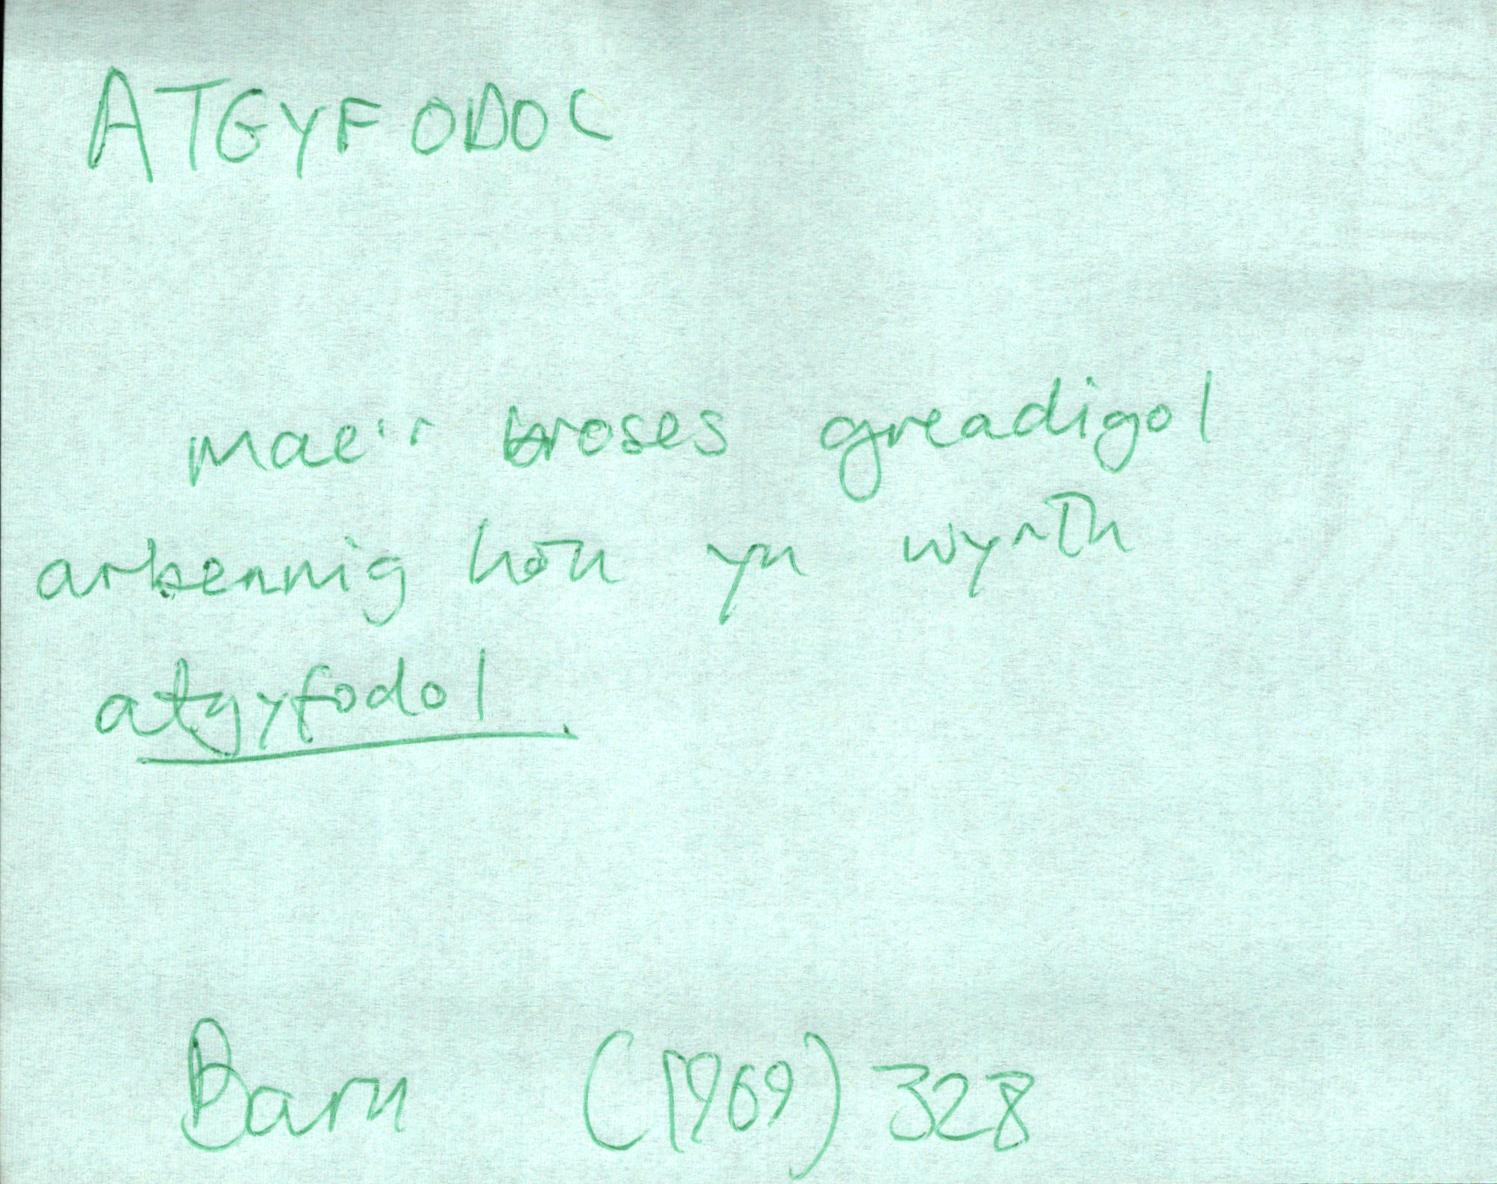 ATGYFODOL
mae'r broses greadigol
arbennig hon yn wyrth
atgyfodol.
Barn (1969) 328